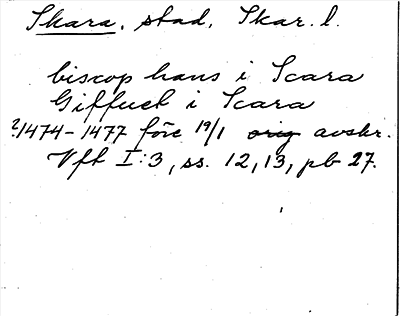 Skara, stad, Skar. l.
biscop hans i Scara
Giffuet i Scara
?1474-1477 före 19/1 orig avskr.
Vft I:3, ss. 12, 13, pb 27.